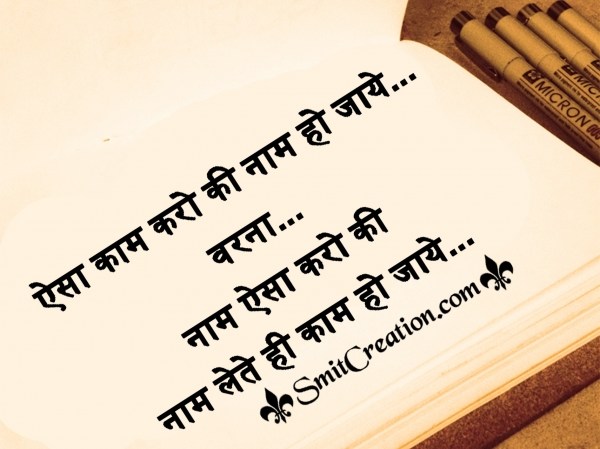 ऐसा काम करो की नाम हो जाये...
वरना...
नाम ऐसा करो की
नाम लेते ही काम हो जाये...
SmitCreation.com
MICRON
MICRON 005